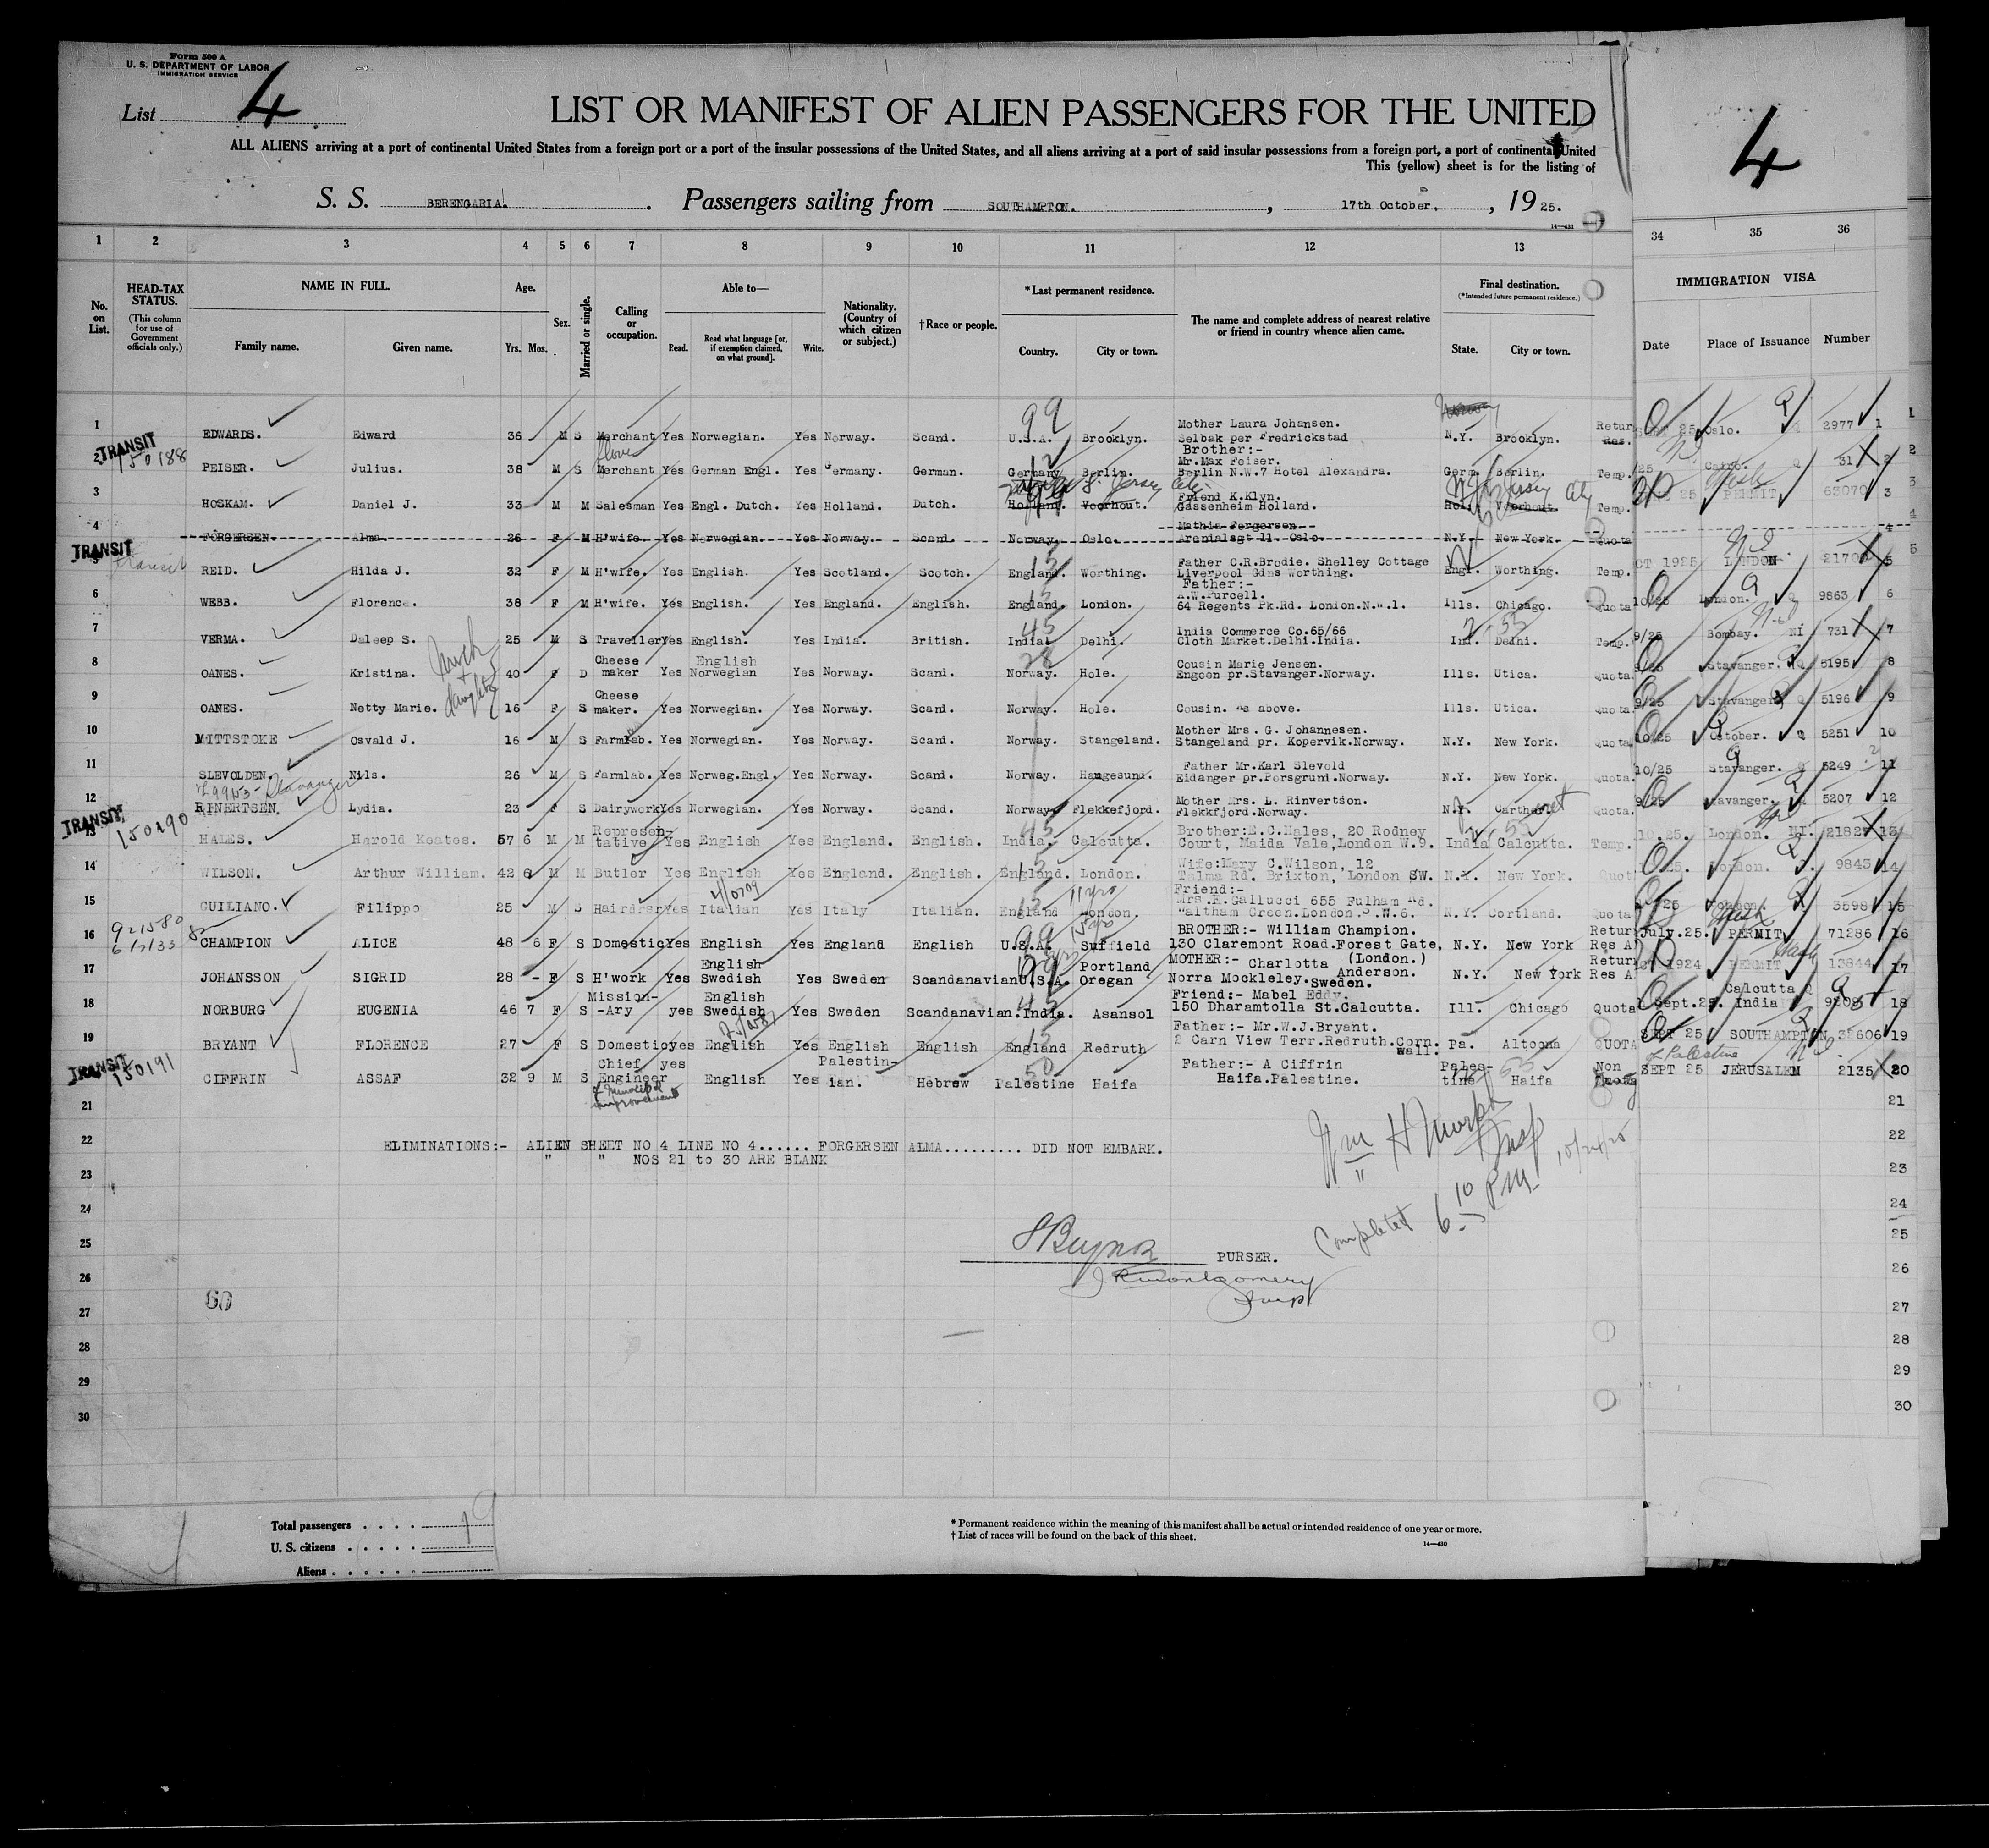 Form 500 A
U. S. DEPARTMENT OF LABOR
IMMIGRATION SERVICE
List 4
LIST OR MANIFEST OF ALIEN PASSENGERS FOR THE UNITED
ALL ALIENS arriving at a port of continental United States from a foreign port or a port of the insular possessions of the United States, and all aliens arriving at a port of said insular possessions from a foreign port, a port of continental United
This (yellow) sheet is for the listing of
S. S. BERENGARIA. Passengers sailing from SOUTHAMPTON. , 17th October. , 19 25.
14—431
4
1 2 3 4 5 6 7 8 9 10 11 12 13 34 35 36
No. on List.
HEAD-TAX STATUS.
(This column for use of Government officials only.)
NAME IN FULL.
Family name. Given name.
Age.
Yrs. Mos.
Sex.
Married or single.
Calling or occupation.
Able to—
Read. Read what language [or, if exemption claimed, on what ground]. Write.
Nationality. (Country of which citizen or subject.)
†Race or people.
*Last permanent residence.
Country. City or town.
The name and complete address of nearest relative or friend in country whence alien came.
Final destination.
(*Intended future permanent residence.)
State. City or town.
IMMIGRATION VISA
Date Place of Issuance Number
99
1 EDWARDS. Edward 36 M S Merchant Yes Norwegian. Yes Norway. Scand. U.S.A. Brooklyn. Mother Laura Johansen. Selbak per Fredrickstad N.Y. Brooklyn. Return Res. 25 Oslo. 2977 1
TRANSIT 150188
2 PEISER. Julius. 38 M S Merchant Yes German Engl. Yes Germany. German. Germany Berlin. Brother:- Mr.Max Feiser. Berlin N.W.7 Hotel Alexandra. Germ. Berlin. Temp. /25 Cairo. 31 2
3 HOSKAM. Daniel J. 33 M M Salesman Yes Engl. Dutch. Yes Holland. Dutch. Holland. Voorhout. Friend K.Klyn. Gassenheim Holland. Hol. Voorhout. Temp. 25 PERMIT 63070 3
4 FORGERSEN. Alma 26 F M H'wife. Yes Norwegian. Yes Norway. Scand. Norway. Oslo. Mathia Forgersen. Arenialsgt 11. Oslo. N.Y. New York. Quota 4
TRANSIT
5 REID. Hilda J. 32 F M H'wife. Yes English. Yes Scotland. Scotch. England. Worthing. Father C.R.Brodie. Shelley Cottage Liverpool Gdns Worthing. Engl. Worthing. Temp. OCT 1925 LONDON 5
6 WEBB. Florence. 38 F M H'wife. Yes English. Yes England. English. England. London. Father:- A.W.Purcell. 64 Regents Pk.Rd. London.N.W.1. Ills. Chicago. Quota 10/25 London. 9863 6
7 VERMA. Daleep S. 25 M S Traveller Yes English. Yes India. British. India. Delhi. India Commerce Co.65/66 Cloth Market.Delhi.India. Ind. Delhi. Temp. 9/25 Bombay. NI 731 7
8 OANES. Kristina. 40 F D Cheese maker Yes English Norwegian Yes Norway. Scand. Norway. Hole. Cousin Marie Jensen. Engoen pr.Stavanger.Norway. Ills. Utica. Quota 9/25 Stavanger. Q 5195 8
9 OANES. Netty Marie. 16 F S Cheese maker. Yes Norwegian. Yes Norway. Scand. Norway. Hole. Cousin. As above. Ills. Utica. Quota 9/25 Stavanger 5196 9
10 MITTSTOKE Osvald J. 16 M S Farmlab. Yes Norwegian. Yes Norway. Scand. Norway. Stangeland. Mother Mrs. G. Johannesen. Stangeland pr. Kopervik.Norway. N.Y. New York. Quota 10/25 October. Q 5251 10
11 SLEVOLDEN. Nils. 26 M S Farmlab. Yes Norweg.Engl. Yes Norway. Scand. Norway. Haugesund. Father Mr.Karl Slevold Eidanger pr.Porsgrund.Norway. N.Y. New York. Quota. 10/25 Stavanger. Q 5249 11
12 RINERTSEN. Lydia. 23 F S Dairywork Yes Norwegian. Yes Norway. Scand. Norway Flekkefjord. Mother Mrs. L. Rinvertson. Flekkfjord.Norway. N.Y. Carthage Quota. 9/25 Stavanger. 5207 12
TRANSIT 150190
13 HALES. Harold Keates. 57 6 M M Representative Yes English Yes England. English. India. Calcutta. Brother:E.C.Hales, 20 Rodney Court, Maida Vale,London W.9. India Calcutta. Temp. 10.25. London. NI. 21827 13
14 WILSON. Arthur William. 42 6 M M Butler Yes English Yes England. English. England. London. Wife:Mary C.Wilson, 12 Talma Rd. Brixton, London SW. N.Y. New York. Quota 25. London. 9843 14
15 GUILIANO. Filippo 25 M S Hairdrsr Yes Italian Yes Italy Italian. England London. Friend:- Mrs.E.Gallucci 655 Fulham Rd. Waltham Green.London.S.W.6. N.Y. Cortland. Quota 25 London. 3598 15
16 CHAMPION ALICE 48 6 F S Domestic Yes English Yes England English U.S.A. Suffield BROTHER:- William Champion. 130 Claremont Road.Forest Gate, (London.) N.Y. New York Return Res A July.25. PERMIT 71286 16
17 JOHANSSON SIGRID 28 - F S H'work Yes English Swedish Yes Sweden Scandanavian U.S.A. Portland Oregan MOTHER:- Charlotta Anderson. Norra Mockleley.Sweden. N.Y. New York Return Res A 1924 PERMIT 13844 17
18 NORBURG EUGENIA 46 7 F S Mission-Ary yes English Swedish Yes Sweden Scandanavian. India. Asansol Friend:- Mabel Eddy. 150 Dharamtolla St.Calcutta. Ill. Chicago Quota Sept.25. Calcutta India 18
19 BRYANT FLORENCE 27 F S Domestic yes English Yes English English England Redruth Father:- Mr.W.J.Bryant. 2 Carn View Terr.Redruth.Cornwall. Pa. Altoona QUOTA SEPT 25 SOUTHAMPTON 32606 19
TRANSIT 150191
20 CIFFRIN ASSAF 32 9 M S Chief Engineer yes English Yes Palestinian. Hebrew Palestine Haifa Father:- A Ciffrin Haifa.Palestine. Palestine Haifa Non Quota SEPT 25 JERUSALEM 2135 20
21
22 ELIMINATIONS:- ALIEN SHEET NO 4 LINE NO 4...... FORGERSEN ALMA......... DID NOT EMBARK.
" " NOS 21 to 30 ARE BLANK
23
24
Completed 6 10 PM
25 PURSER.
26
27 60
28
29
30
Total passengers . . . . 19
U. S. citizens . . . . .
Aliens . . . . . .
* Permanent residence within the meaning of this manifest shall be actual or intended residence of one year or more.
† List of races will be found on the back of this sheet.
14—430